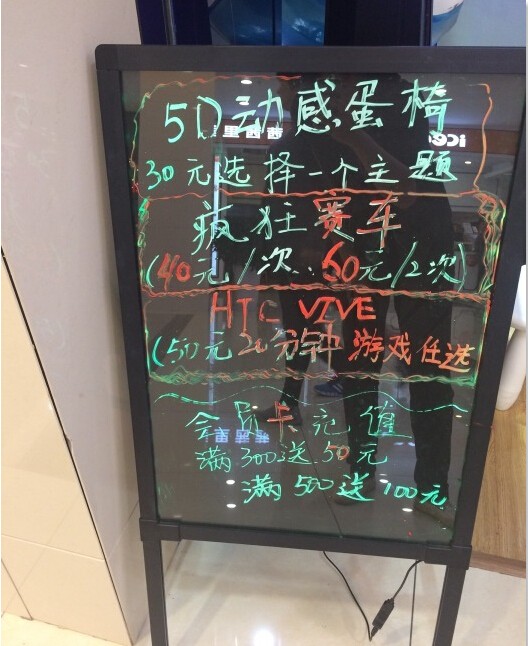 5D动感蛋椅
30元选择一个主题
疯狂赛车
(40元/次..60元/2次)
HTC VIVE
(50元20分钟 游戏任选
会员卡充值
满300送50元
满500送100元